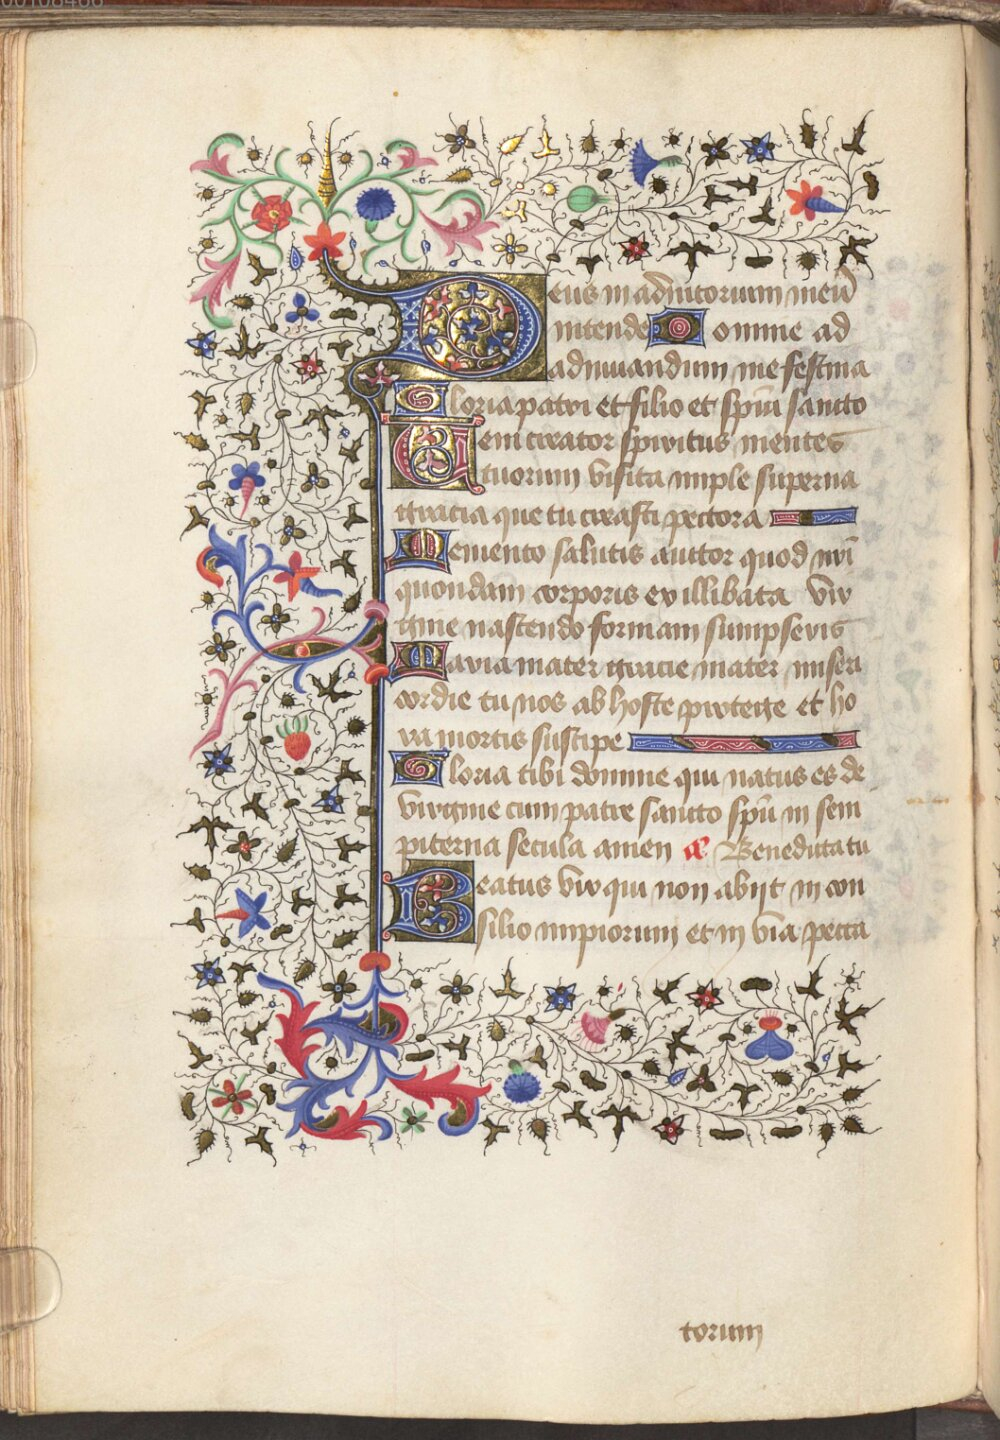 Deus in adiutorium meū
intende Domine ad
adiuuandum me festina
Gloria patri et filio et spūi sancto
Ueni creator spiritus mentes
tuorum visita imple superna
gracia que tu creasti pectora
Memento salutis auctor quod nr̄i
quondam corporis ex illibata vir
gine nascendo formam sumpseris
Maria mater gracie mater miseri
cordie tu nos ab hoste protege et ho
ra mortis suscipe
Gloria tibi domine qui natus es de
virgine cum patre sancto spū in sem
piterna secula amen a͞ Benedicta tu
Beatus vir qui non abijt in con
silio impiorum et in via pecca
torum